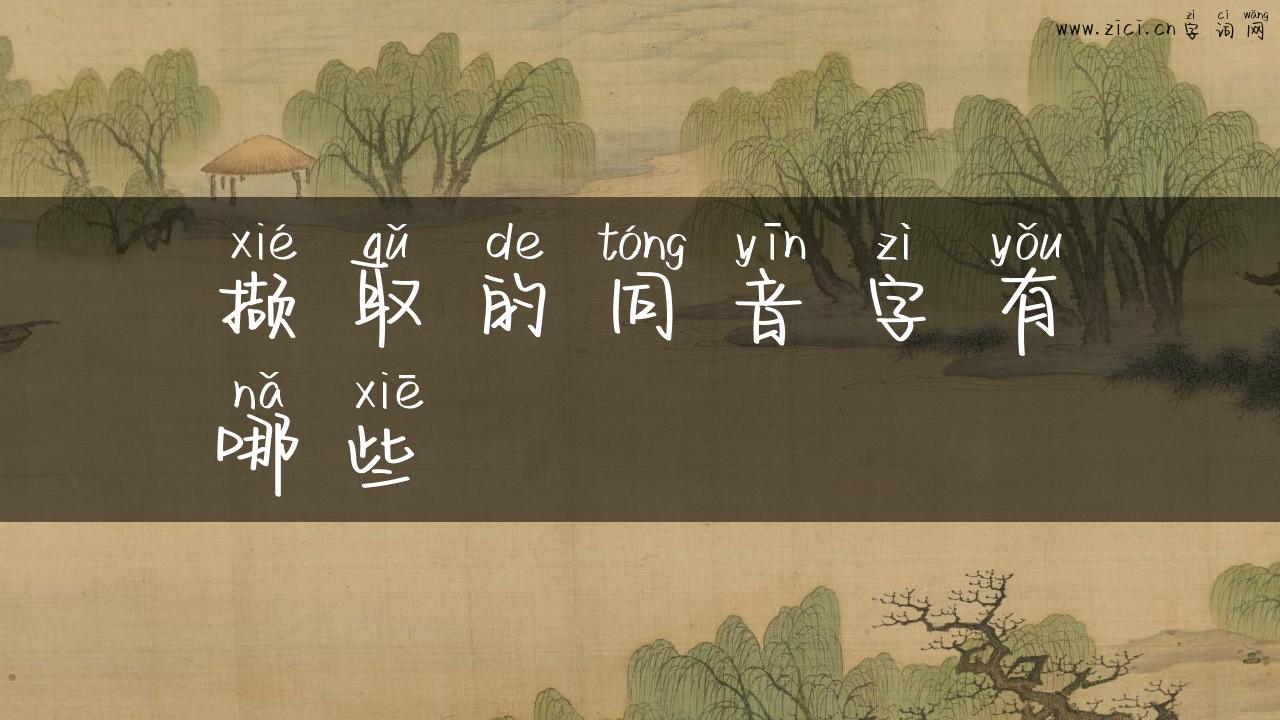 zì cí wǎng
www.zici.cn 字词网
xié qǔ de tóng yīn zì yǒu
撷取的同音字有
nǎ xiē
哪些